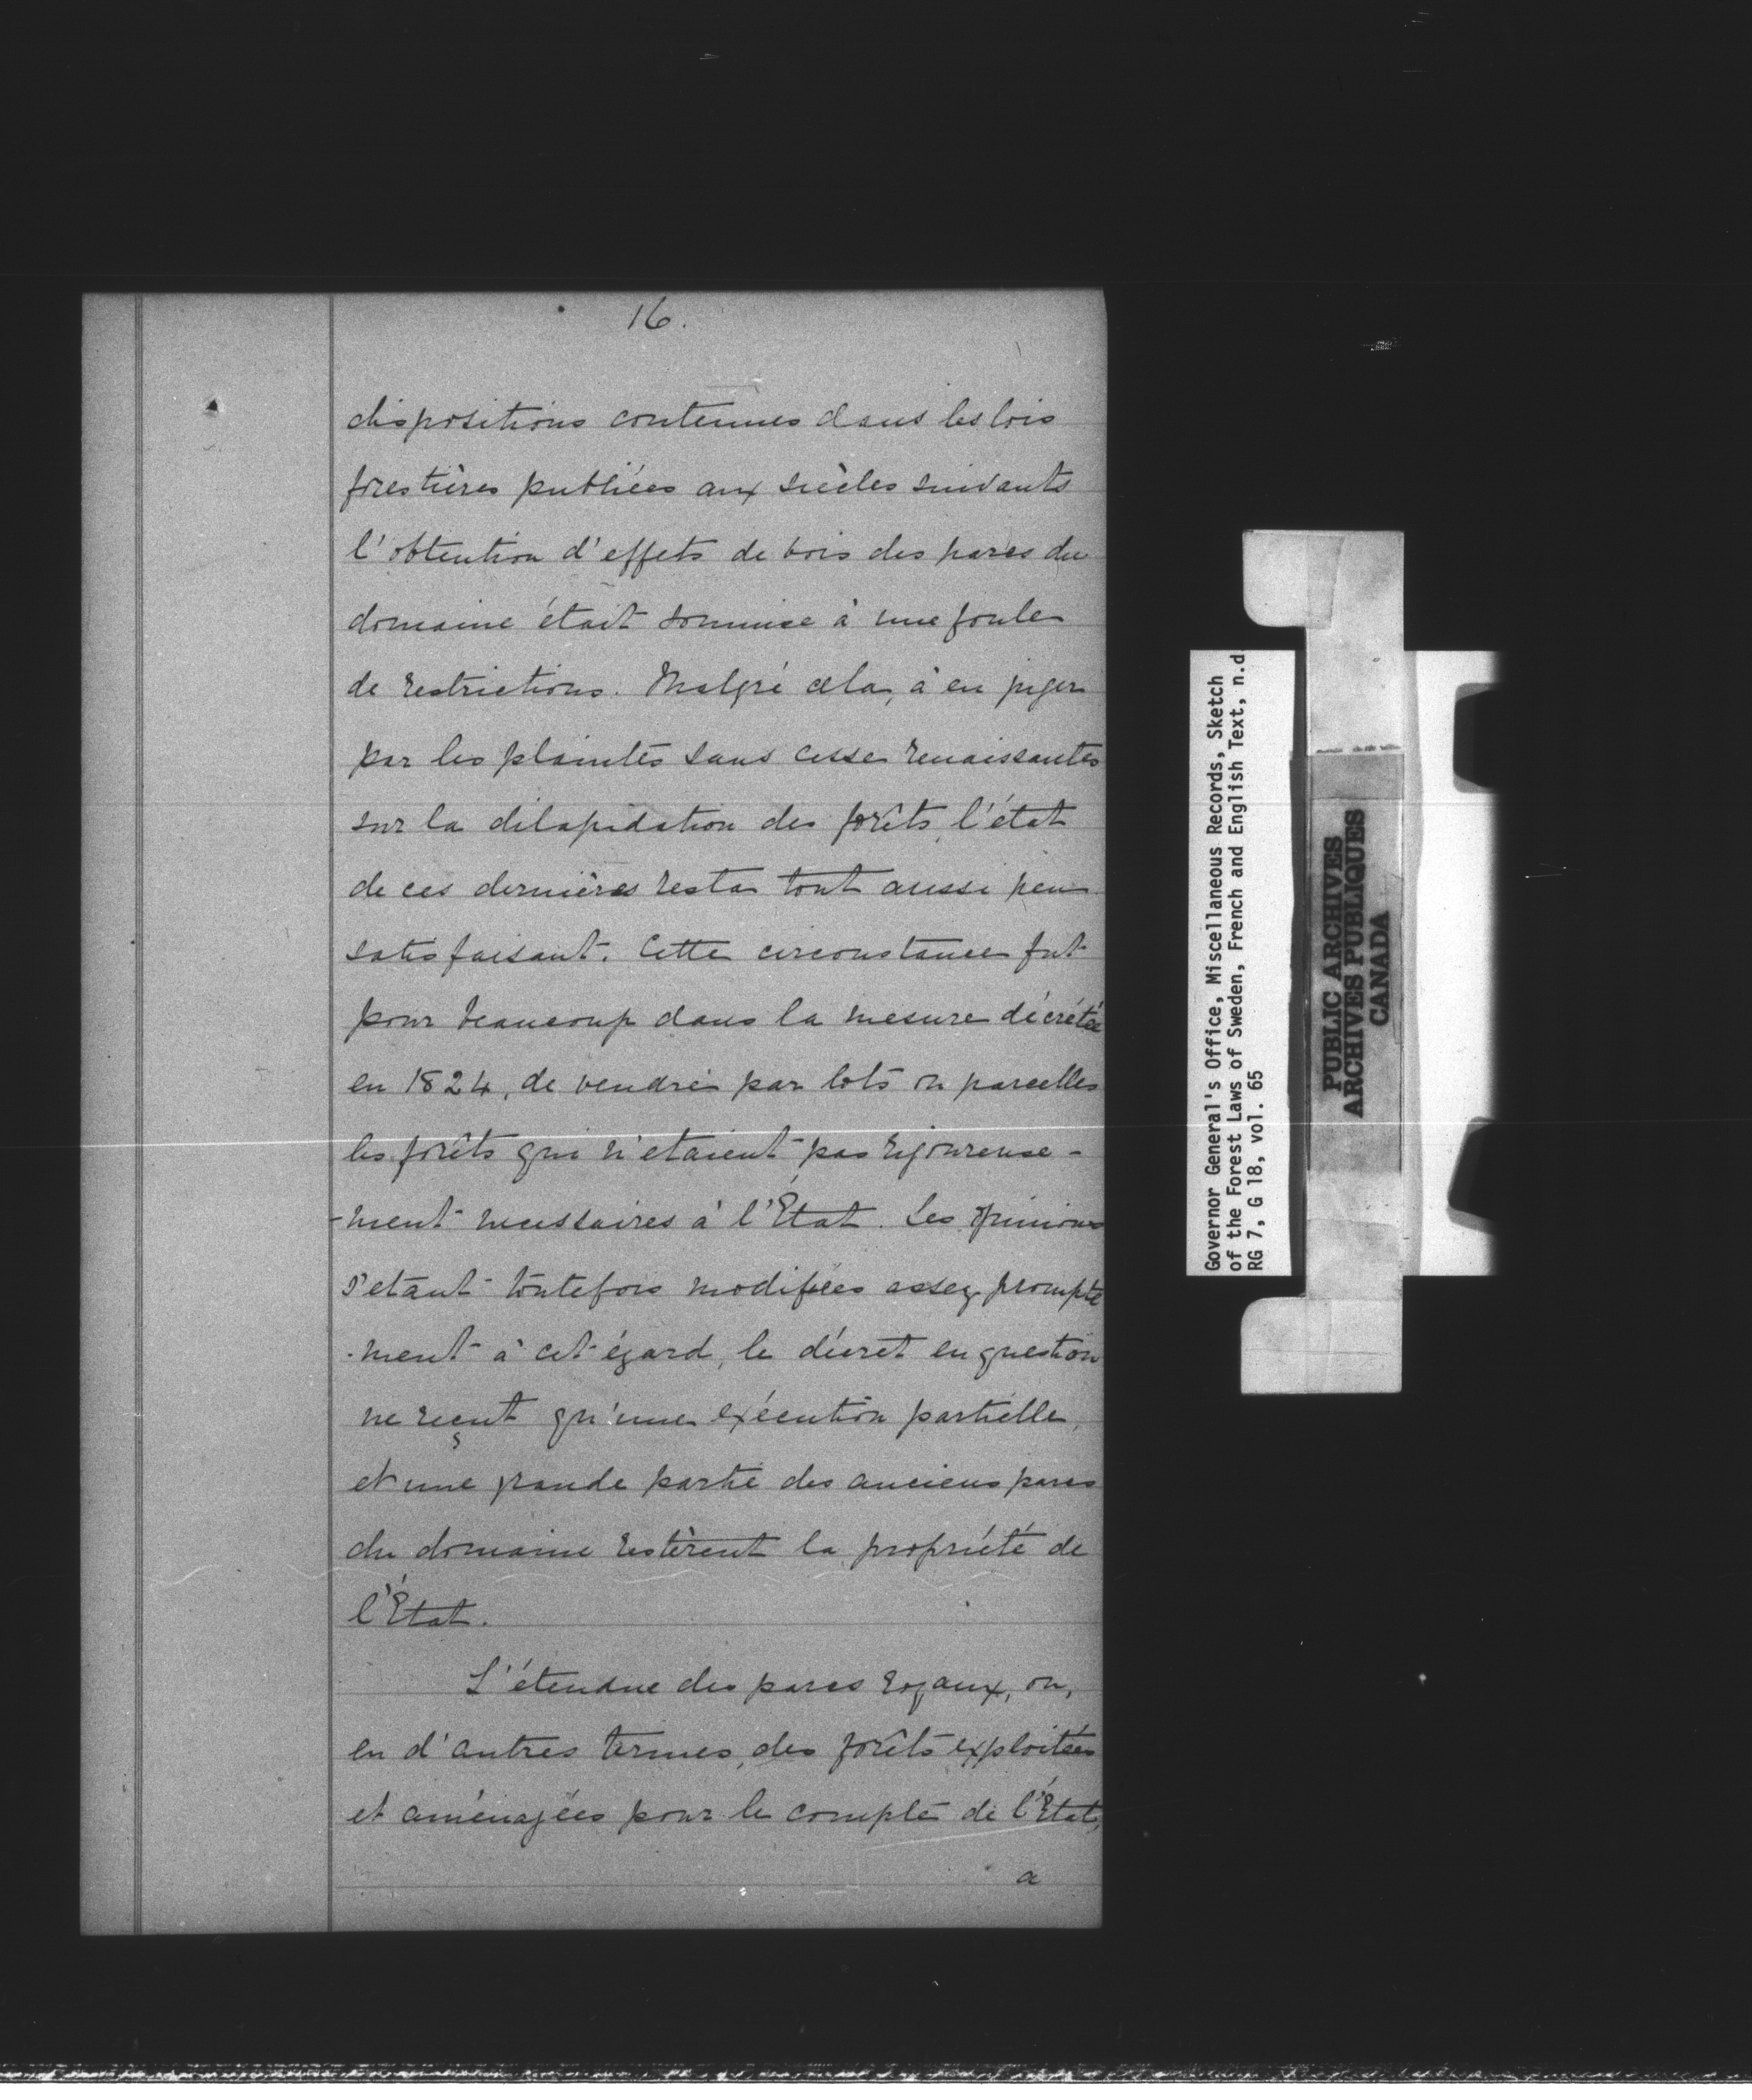 16.
dispositions contenues dans les lois
forestières publiées aux siècles suivants
l'obtention d'effets de bois des parcs du
domaine était soumise à une foule
de restrictions. Malgré cela, à en juger
par les plaintes sans cesse renaissantes
sur la dilapidation des forêts, l'état
de ces dernières resta tout aussi peu
satisfaisant. Cette circonstance fut
pour beaucoup dans la mesure décrétée
en 1824, de vendre par lots ou parcelles
les forêts qui n'etaient pas rigoureuse-
-ment necessaires à l'État. Les opinions
s'etant toutefois modifiées assez prompte
-ment à cet égard, le décret en question
ne reçut qu'une exécution partielle,
et une grande partie des anciens parcs
du domaine restèrent la propriété de
l'État.
L'étendue des parcs royaux, ou,
en d'autres termes, des forêts exploitées
et aménagées pour le compte de l'État,
a
Governor General's Office, Miscellaneous Records, Sketch
of the Forest Laws of Sweden, French and English Text, n.d
RG 7, G 18, vol. 65
PUBLIC ARCHIVES
ARCHIVES PUBLIQUES
CANADA